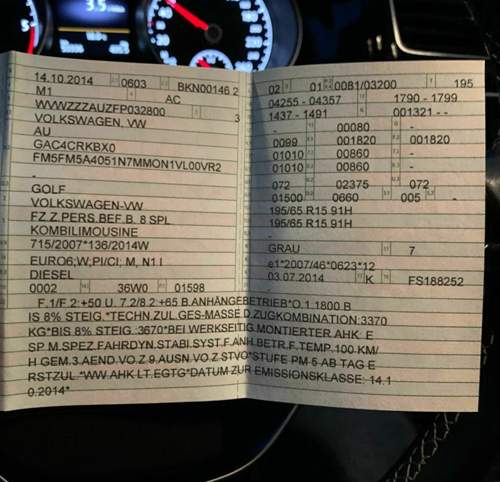 3.5
14.10.2014 0603 BKN00146 2
M1 AC
WVWZZZAUZFP032800 3
VOLKSWAGEN, VW
AU
GAC4CRKBX0
FM5FM5A4051N7MMON1VL00VR2
-
GOLF
VOLKSWAGEN-VW
FZ.Z.PERS.BEF.B. 8 SPL
KOMBILIMOUSINE
715/2007*136/2014W
EURO6;W,PI/CI; M, N1 I
DIESEL
0002 36W0 01598
02 01 0081/03200 195
04255 - 04357 1790 - 1799
1437 - 1491 001321 - -
- 00080 -
0099 001820 001820
01010 00860 - -
01010 00860 - -
072 02375 072
01500 0660 005 -
195/65 R15 91H
195/65 R15 91H
-
GRAU 7
e1*2007/46*0623*12
03.07.2014 K FS188252
F.1/F.2:+50 U. 7.2/8.2:+65 B.ANHÄNGEBETRIEB*O.1:1800 B
IS 8% STEIG.*TECHN.ZUL.GES-MASSE D.ZUGKOMBINATION:3370
KG*BIS 8% STEIG.:3670*BEI WERKSEITIG.MONTIERTER AHK: E
SP M.SPEZ.FAHRDYN.STABI.SYST.F.ANH.BETR.F.TEMP.100 KM/
H GEM.3.AEND.VO.Z.9.AUSN.VO.Z.STVO*STUFE PM 5 AB TAG E
RSTZUL.*WW.AHK LT.EGTG*DATUM ZUR EMISSIONSKLASSE: 14.1
0.2014*